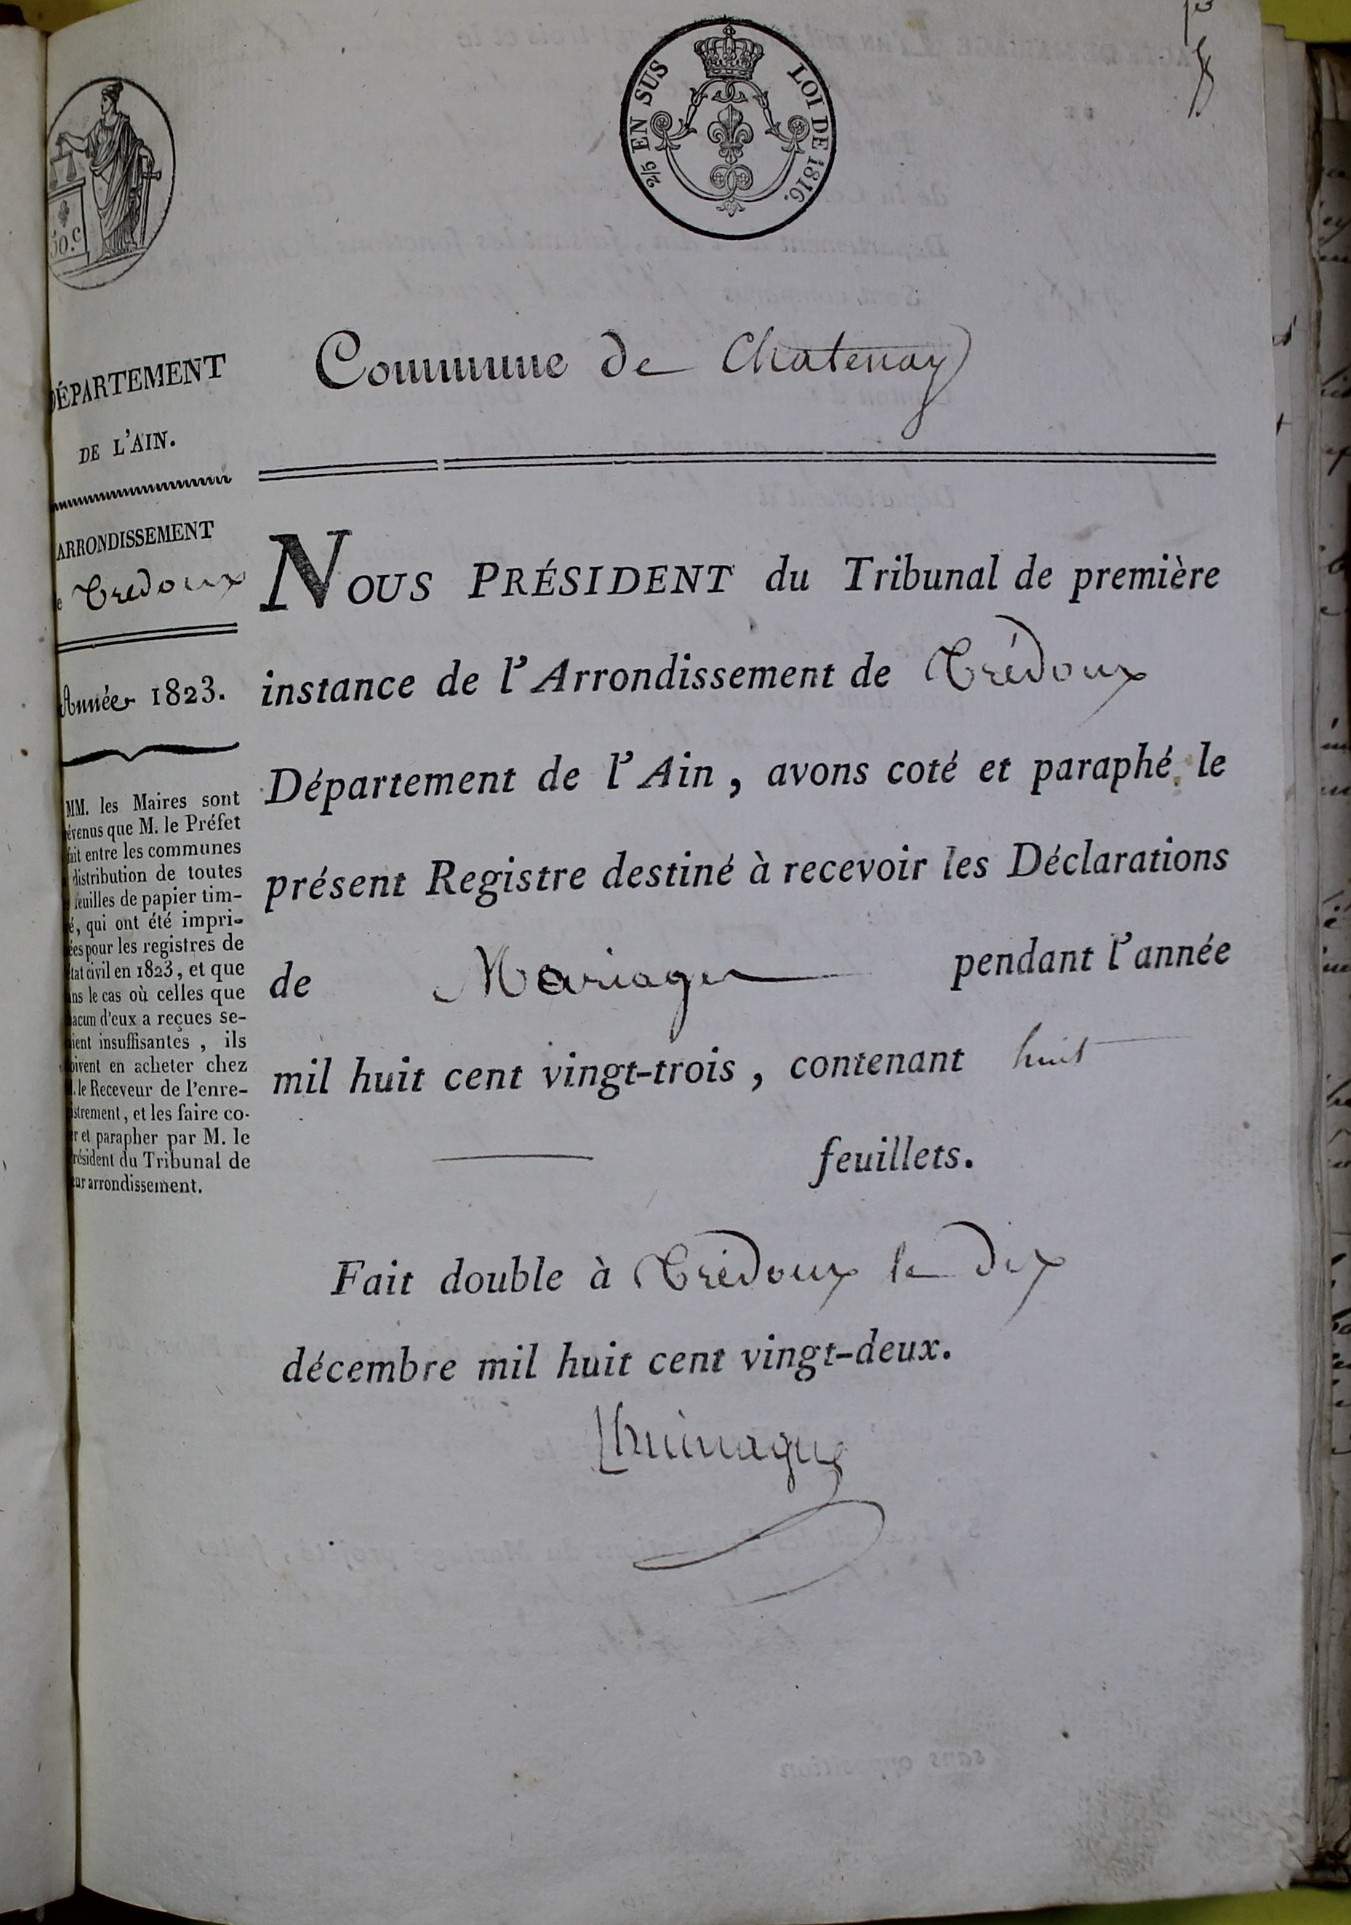 2/5 EN SUS LOI DE 1816.
50.c
DÉPARTEMENT
DE L'AIN.
ARRONDISSEMENT
e Trévoux
Année 1823.
MM. les Maires sont
évenus que M. le Préfet
fait entre les communes
distribution de toutes
feuilles de papier tim-
é, qui ont été impri-
ées pour les registres de
état civil en 1823, et que
ans le cas où celles que
acun d'eux a reçues se-
aient insuffisantes, ils
oivent en acheter chez
. le Receveur de l'enre-
istrement, et les faire co-
r et parapher par M. le
résident du Tribunal de
eur arrondissement.
Commune de Chatenay
NOUS PRÉSIDENT du Tribunal de première
instance de l'Arrondissement de Trévoux
Département de l'Ain, avons coté et paraphé le
présent Registre destiné à recevoir les Déclarations
de Mariages pendant l'année
mil huit cent vingt-trois, contenant huit
feuillets.
Fait double à Trévoux le dix
décembre mil huit cent vingt-deux.